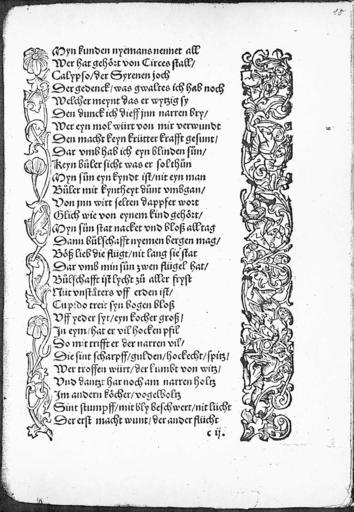 Myn kunden nyemans nennet all
Wer hat gehört von Circes stall/
Calypso/der Syrenen joch
Der gedenck/was gwaltes ich hab noch
Welcher meynt das er wytzig sy
Den dunck ich dieff jnn narren bry/
Wer eyn mol würt von mir verwundt
Den macht keyn krütter krafft gesunt/
Dar vmb hab ich eyn blinden sün/
Keyn büler sicht was er sol thün
Myn sün eyn kyndt ist/nit eyn man
Büler mit kyntheyt dünt vmbgan/
Von jnn wirt selten dappfer wort
Glich wie von eynem kind gehört/
Myn sün stat nacket vnd bloß all tag
Dann bülschafft nyemen bergen mag/
Böß lieb die flügt/nit lang sie stat
Dar vmb min sün zwen flügel hat/
Bülschafft ist lycht zü aller fryst
Nüt vnstäters vff erden ist/
Cupido treit syn bogen bloß
Vff yeder syt/eyn kocher groß/
In eym/hat er vil hocken pfil
So mit trifft er der narren vil/
Die sint scharpff/gulden/hockecht/spitz/
Wer troffen würt/der kumbt von witz/
Vnd dantzt har noch am narren holtz
Im andern köcher/vogelboltz
Sint stumpff/mit bly beschwert/nit lücht
Der erst macht wunt/der ander flücht
c ij.